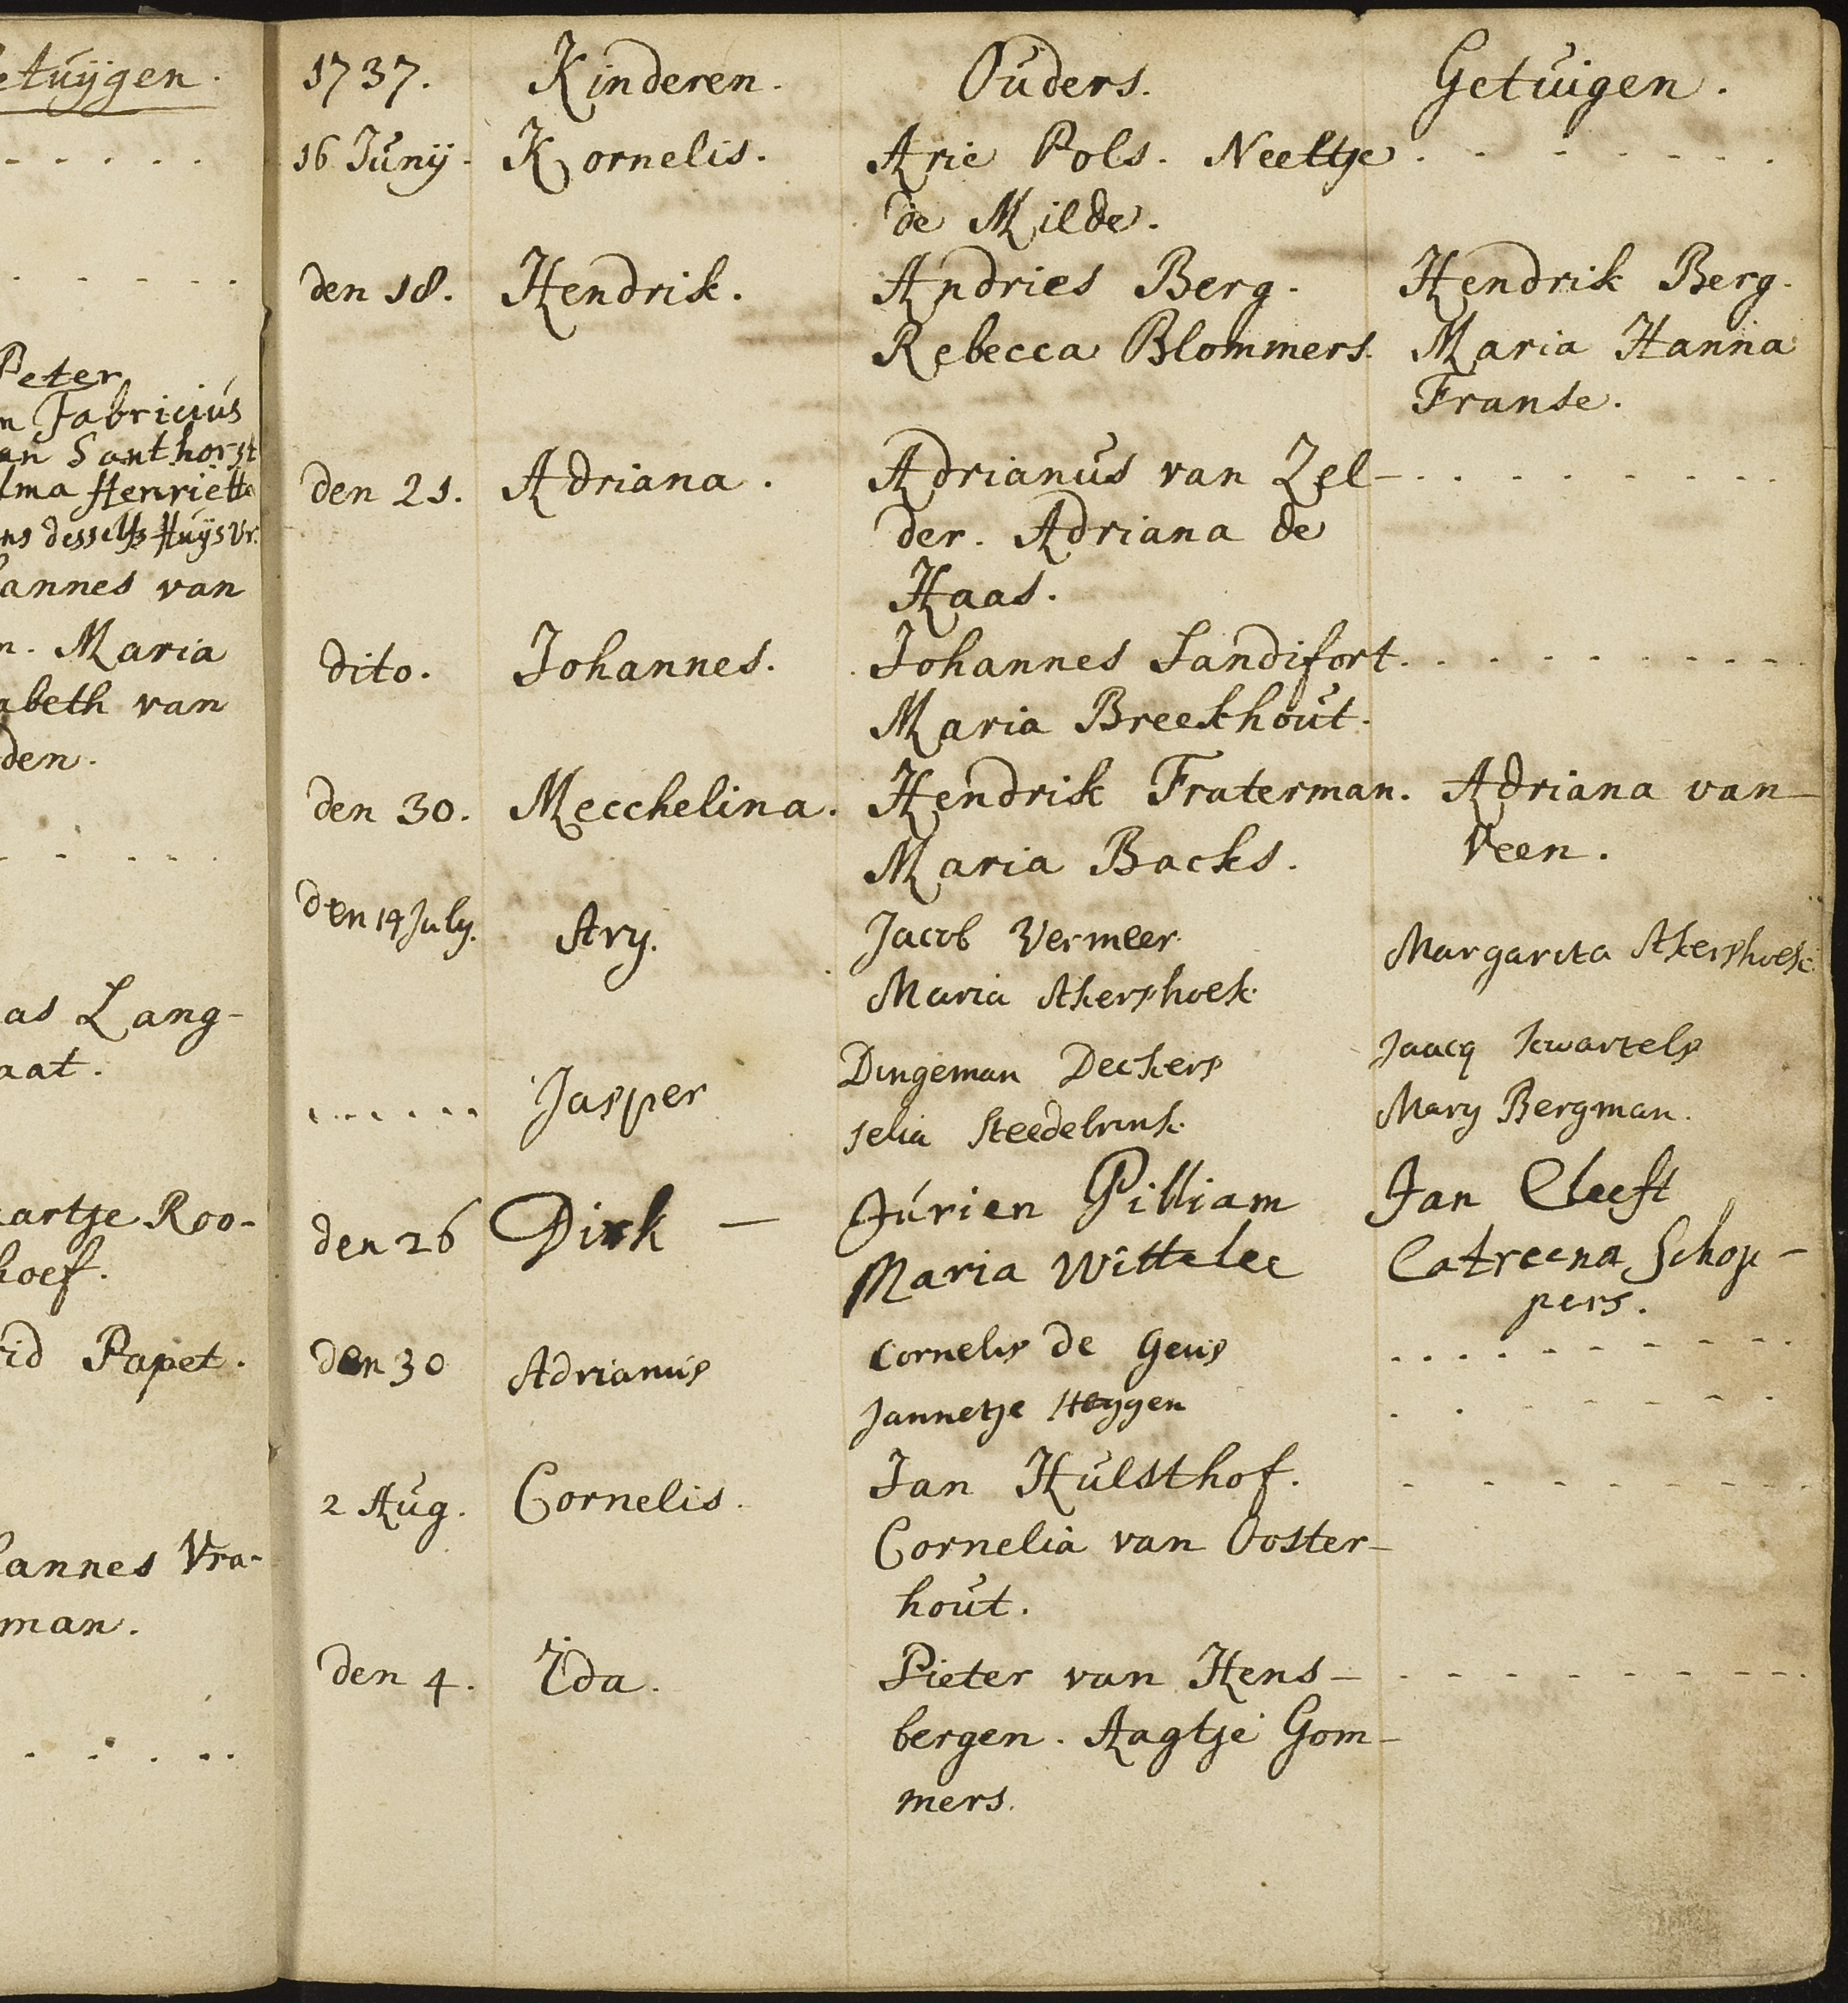 etuÿgen.
- - - - -
- - - - -
Peter
n Fabriciús
an Santhorst
lma Henriette
ns desselfs Huÿsvr.
annes van
n. Maria
abeth van
den.
- - - - -
as Lang-
aat.
aartje Roo-
hoef.
vid Papet.
annes Vra-
man.
- - - - -
1737. Kinderen. Ouders. Getuigen.
16 Junij. Kornelis. Arie Pols. Neeltje . - - - - - -
de Milde.
den 18. Hendrik. Andries Berg. Hendrik Berg.
Rebecca Blommers. Maria Hanna
Franse.
den 21. Adriana. Adrianus van Zel- . . . . . . . .
der. Adriana de
Haas.
dito. Johannes. Johannes Sandifort. . . . . . . . . .
Maria Breekhout.
den 30. Mecchelina. Hendrik Fraterman. Adriana van-
Maria Backs. Veen.
den 14 July. Ary. Jacob Vermeer. Margarita Akershoek.
Maria Akershoek.
. . . . . . Jasper Dingeman Deckers Jaacq Kwartels
Selia Steedebrink. Mary Bergman.
den 26 Dirk — Jurien Pilliam Jan Cleeft
Maria Wittelee Catreena Schop-
pers.
den 30 Adrianus Cornelis de Geus . . . . . . . . .
Jannetje Heggen . . . . . . . . .
2 Aug. Cornelis. Jan Hulsthof. - - - - - - - - -
Cornelia van Ooster-
hout.
den 4. Ida. Pieter van Hens- - - - - - - - - -
bergen. Aagtje Gom-
mers.